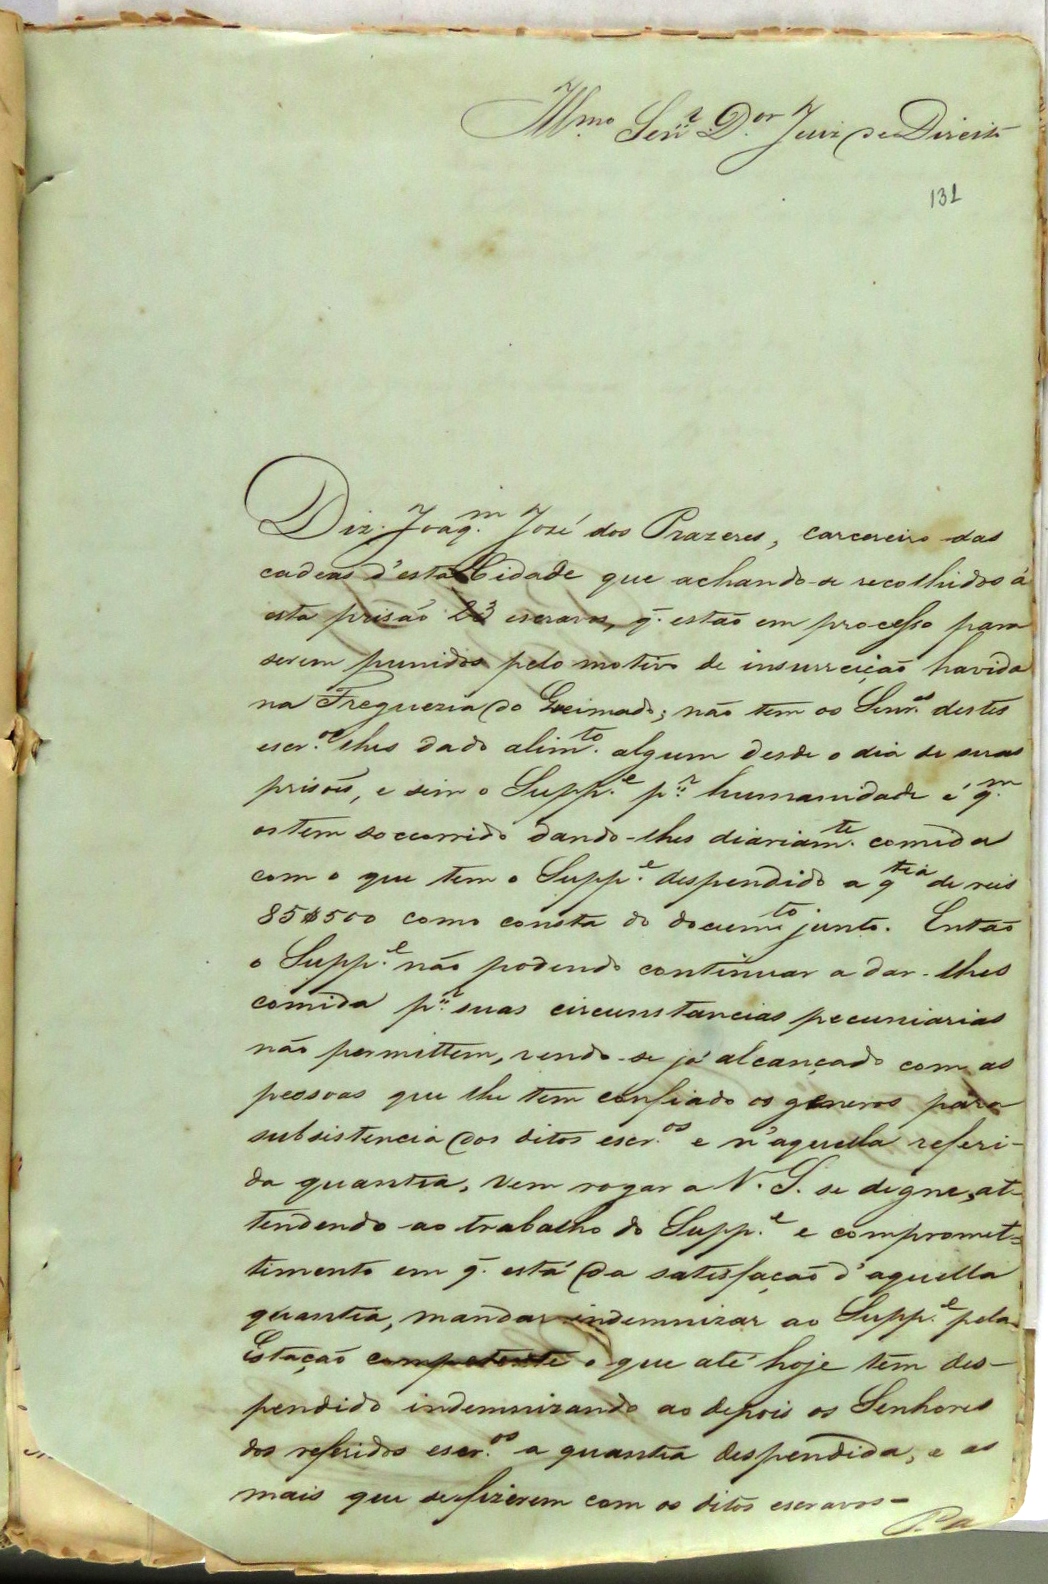 Illmo Senr. Dor. Juiz de Direito
131
Diz Joaqm. José dos Prazeres, carcereiro das
cadeas d'esta Cidade que achando-se recolhidos á
esta prisão 23 escravos, q. estão em processo para
serem punidos pelo motivo de insurreição havida
na Freguezia do Queimado; não tem os Senres. destes
escr.os lhes dado alimto. algum desde o dia de suas
prisões, e sim o Suppe. pr. humanidade é qm.
os tem soccorrido dando-lhes diariamte. comida
com o que tem o Suppe. despendido a qtia de reis
85$500 como consta do documto junto. Então
o Suppe. não podendo continuar a dar-lhes
comida pr. suas circunstancias pecuniarias
não permittem, vendo-se já alcançado com as
pessoas que lhe tem confiado os generos para
subsistencia dos ditos escr.os e n'aquella referi-
da quantia, vem rogar a V. S. se digne, at-
tendendo ao trabalho do Suppe. e compromet-
timento em q. está da satisfação d'aquella
quantia, mandar indemnizar ao Suppe. pela
Estação competente o que até hoje tem des-
pendido indemnizando ao depois os Senhores
dos referidos escr.os a quantia despendida, e as
mais que se fizerem com os ditos escravos-
P. a